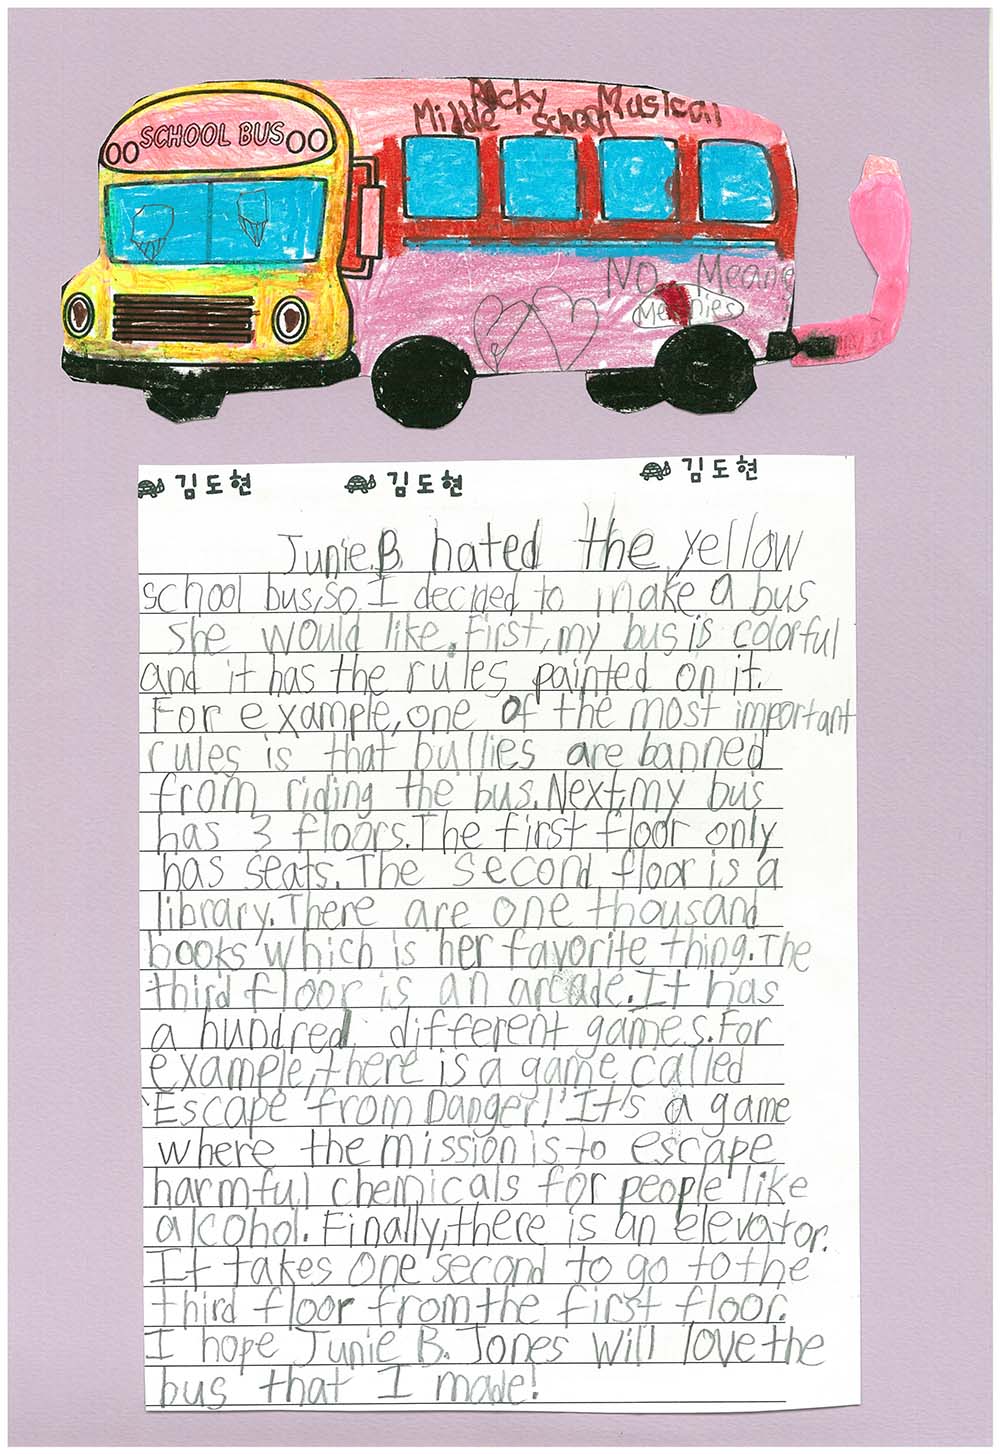 Rocky
Middle School Musical
SCHOOL BUS
No Means
Me nies
김도현 김도현 김도현
Junie B. hated the yellow
school bus, so I decided to make a bus
she would like. First, my bus is colorful
and it has the rules painted on it.
For example, one of the most important
rules is that bullies are banned
from riding the bus. Next, my bus
has 3 floors. The first floor only
has seats. The second floor is a
library. There are one thousand
books which is her favorite thing. The
third floor is an arcade. It has
a hundred different games. For
example, there is a game called
'Escape from Danger!' It's a game
where the mission is to escape
harmful chemicals for people like
alcohol. Finally, there is an elevator.
It takes one second to go to the
third floor from the first floor.
I hope Junie B. Jones will love the
bus that I made!